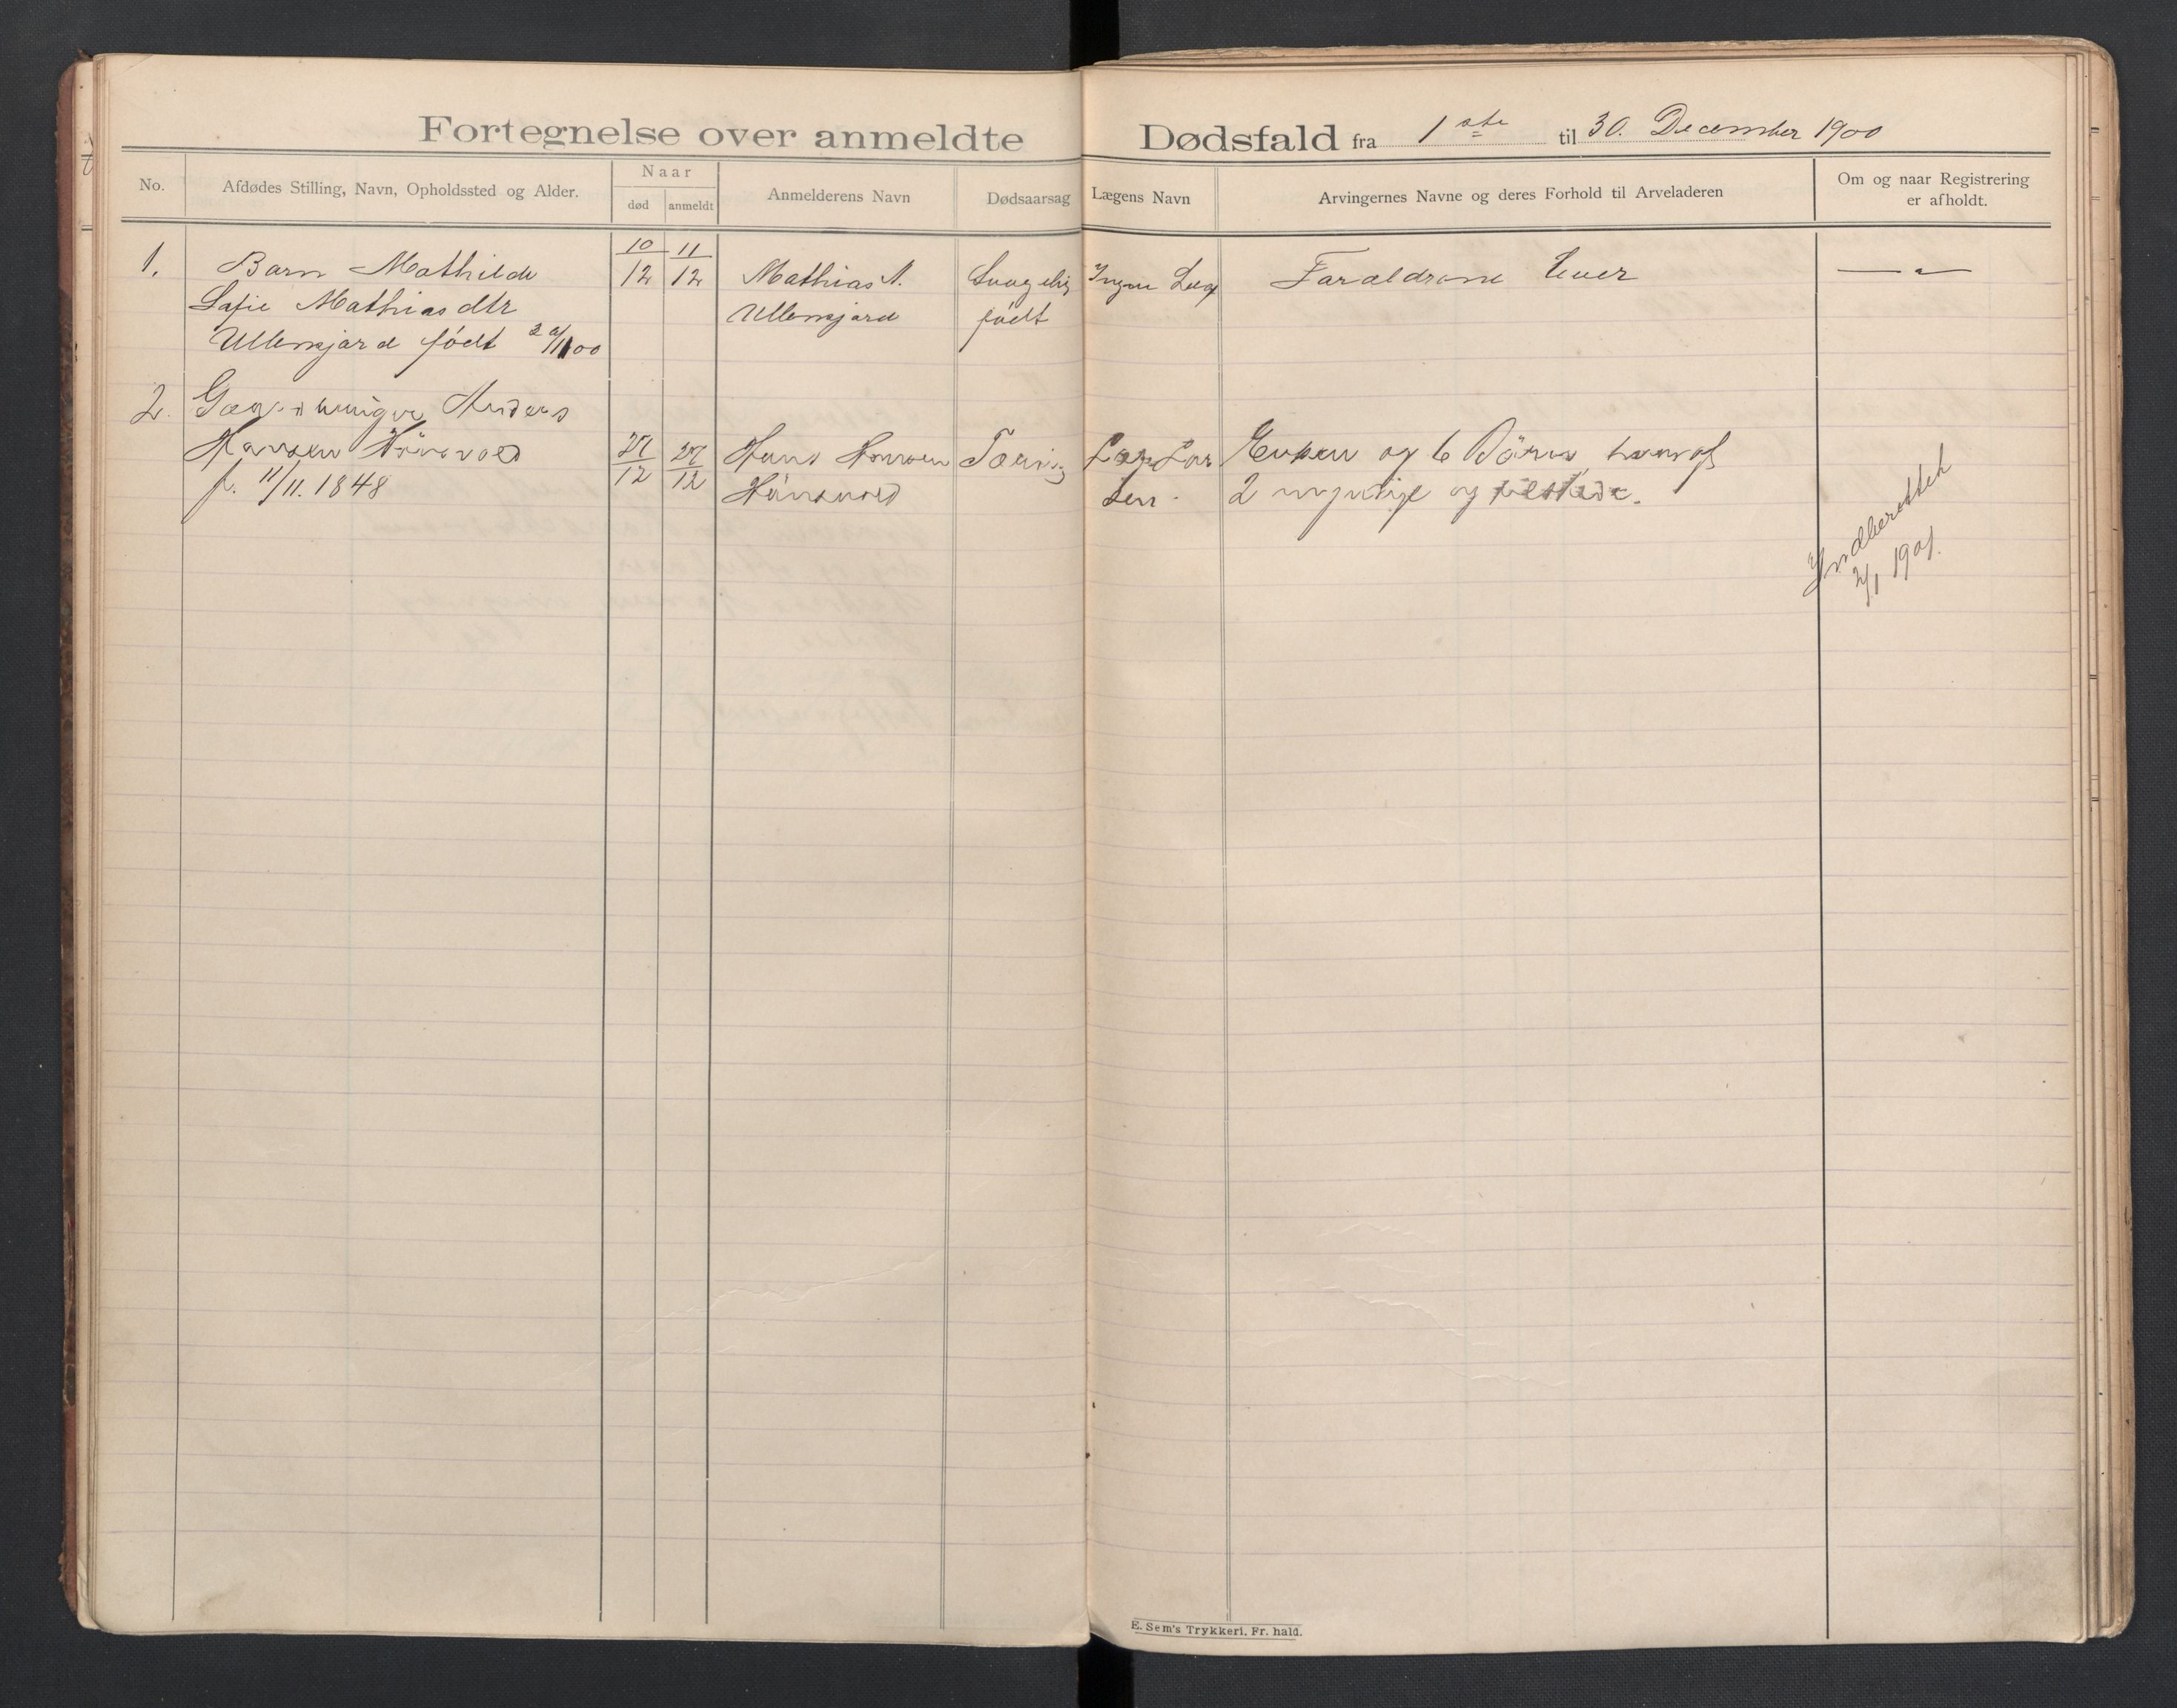 Fortegnelse over anmeldte Dødsfald fra 1ste til 30. December 1900
No. Afdødes Stilling, Navn, Opholdssted og Alder. Naar død anmeldt Anmelderens Navn Dødsaarsag Lægens Navn Arvingernes Navne og deres Forhold til Arveladeren Om og naar Registrering er afholdt.
1. Barn Mathilde 10/12 11/12 Mathias A. Svagelig Ingen Læge Foraldrene lever — " —
Sofie Mathiasdtr Ullensjord født
Ullensjord født 00
2. Gaardbruger Anders
Hansen Hönsvold 27/12 27/12 Hans Hansen Tæring Læge Lar Enken og 6 Börn, hvoraf
f. 11/11. 1848 Hönsvold sen. 2 umyndige og tilstede.
Indberettet
2/1 1901.
E. Sem's Trykkeri, Fr. hald.